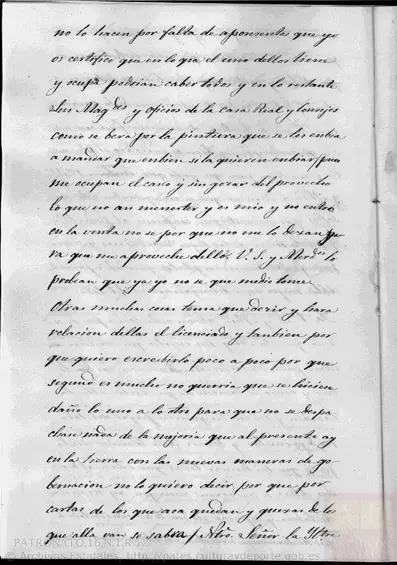 no lo hacen por falta de aposentos que yo
os certifico que en lo que el uno dellos tiene
y ocupa podrian caber todos y en lo restante
Sus Mag.des y oficios de la casa Real y Consejos
como se bera por la pintura que se les enbia
a mandar que enbien si la quieren enbiar/pues
me ocupan el caso y sin gozar del provecho
lo que no an menester y es mio y no entro
en la venta no se por que no me lo dexan pa
ra que me aproveche dello V. S. y Merdes lo
probean que ya yo no se que medio tome
Otras muchas cosas tenia que dezir y hara
relacion dellas el licenciado y tanbien por
que quiero escrebirlo poco a poco por que
segund es mucho no querria que se hiciese
daño lo uno a lo otro para que no se despa
chase nada de la mejoria que al presente ay
en la tierra con las nuevas maneras de go-
bernacion no lo quiero decir, por que por
cartas de los que aca quedan y quexas de los
que alla van se sabra/Ntro. Señor la Yltre
PATRONATO,16,N.1,R.
© Archivos Estatales, http://pares.culturaydeporte.gob.es